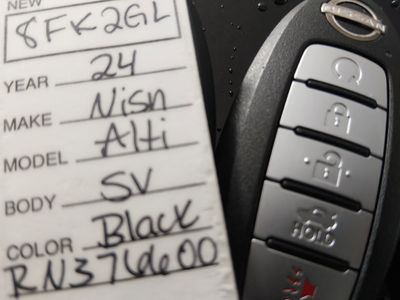 NEW
8FK2GL
YEAR 24
MAKE Nisn
MODEL Alti
BODY SV
COLOR Black
RN376600
HOLD